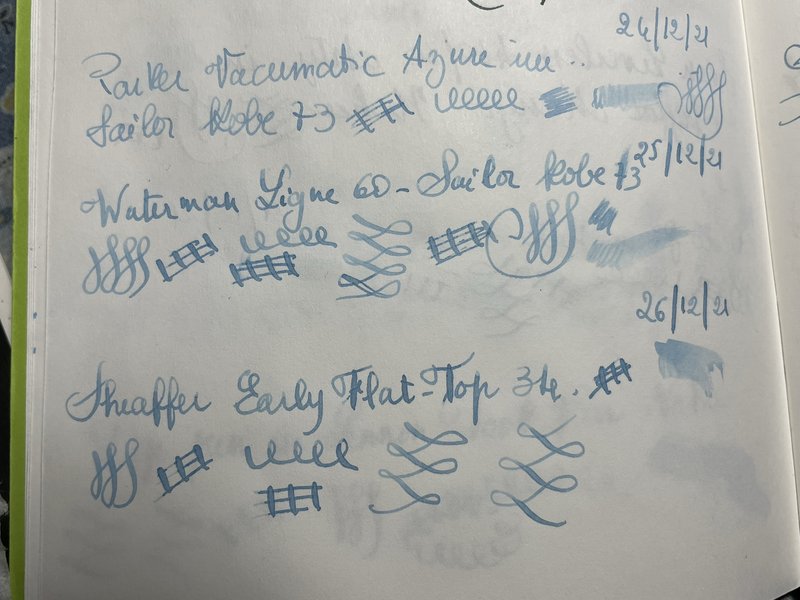 24/12/21
Parker Vacumatic Azure
Sailor Kobe 73
25/12/21
Waterman Ligne 60 - Sailor Kobe 73
26/12/21
Sheaffer Early Flat-Top 34.